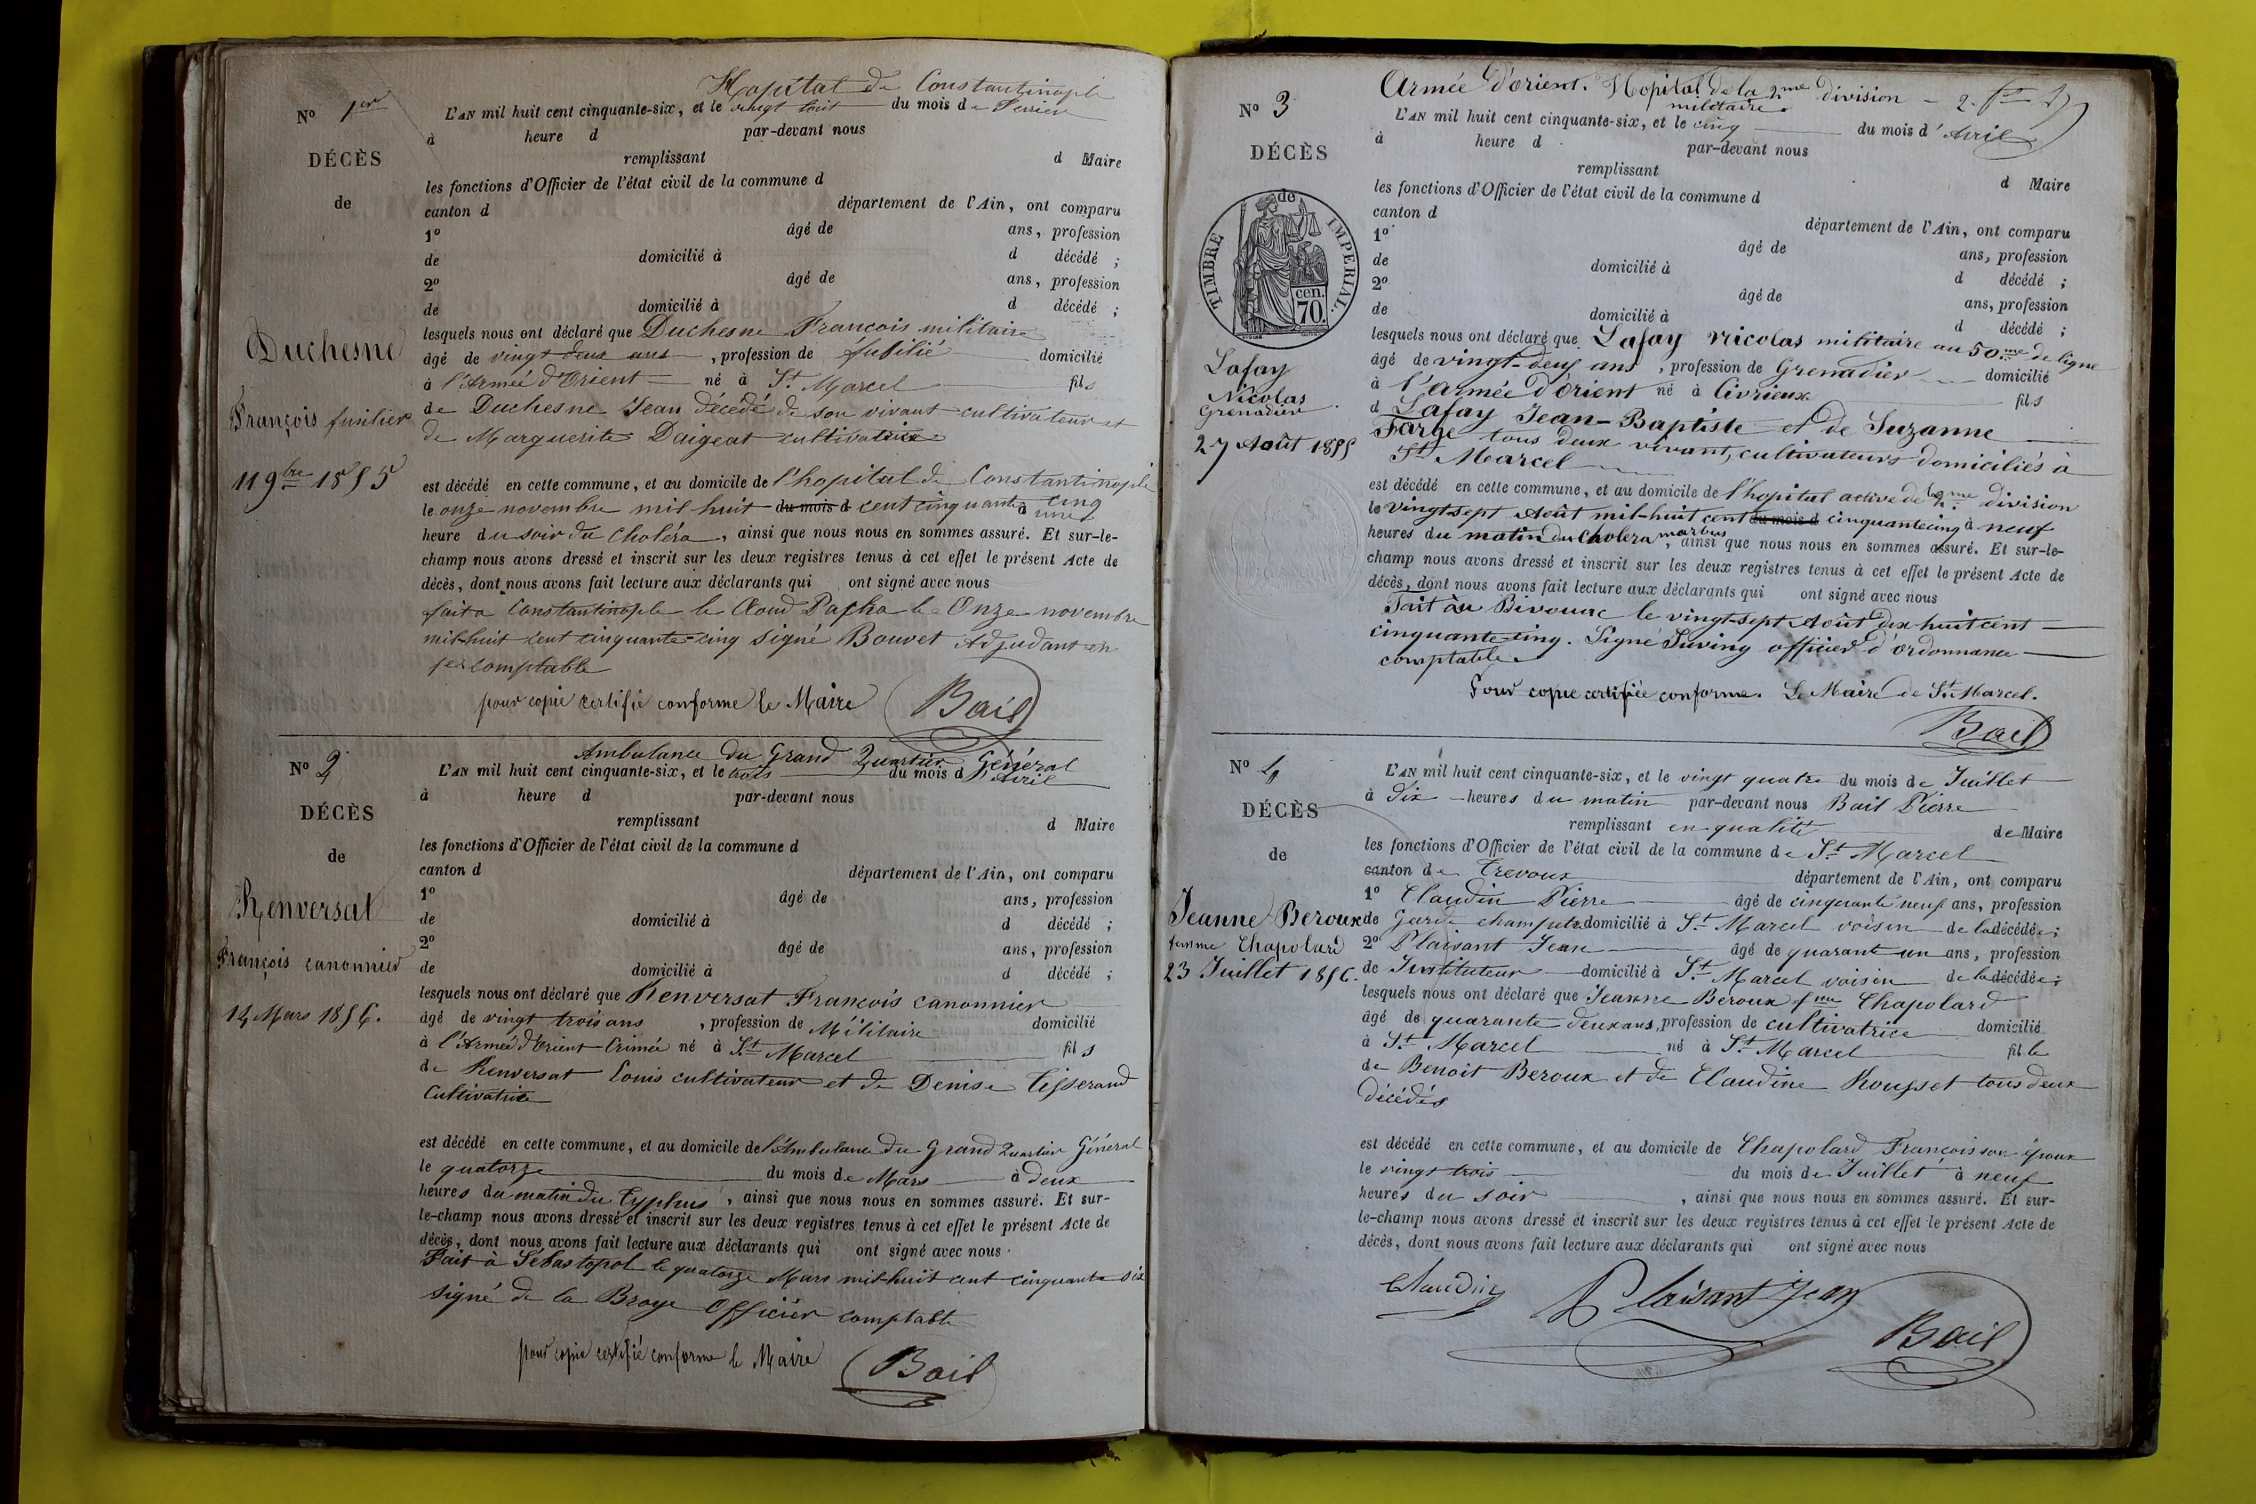 Hopital de Constantinople
No 1er
L'AN mil huit cent cinquante-six, et le vingt huit du mois de
à heure d par-devant nous
DÉCÈS
remplissant d Maire
les fonctions d'Officier de l'état civil de la commune d
de
canton d département de l'Ain, ont comparu
1o âgé de ans, profession
de domicilié à d décédé ;
2o âgé de ans, profession
de domicilié à d décédé ;
lesquels nous ont déclaré que Duchesne François militaire
Duchesne
âgé de vingt deux ans , profession de fusilié domicilié
à l'Armée d'Orient né à St Marcel fils
François fusilier
de Duchesne Jean décédé de son vivant cultivateur et
de Marguerite Daigeat cultivatrice
11 9bre 1855
est décédé en cette commune, et au domicile de l'hopital de Constantinople
le onze novembre mil huit du mois d cent cinquante cinq à une
heure du soir du Choléra, ainsi que nous nous en sommes assuré. Et sur-le-
champ nous avons dressé et inscrit sur les deux registres tenus à cet effet le présent Acte de
décès, dont nous avons fait lecture aux déclarants qui ont signé avec nous
fait a Constantinople le Daoud Pacha le Onze novembre
mil-huit cent cinquante-cinq signé Bouvet Adjudant en
comptable
pour copie certifié conforme le Maire
Bail
Ambulance du Grand Quartier Général
No 2
L'AN mil huit cent cinquante-six, et le trois du mois d'Avril
à heure d par-devant nous
DÉCÈS
remplissant d Maire
les fonctions d'Officier de l'état civil de la commune d
de
canton d département de l'Ain, ont comparu
1o âgé de ans, profession
Renversat
de domicilié à d décédé ;
2o âgé de ans, profession
François canonnier
de domicilié à d décédé ;
lesquels nous ont déclaré que Renversat François canonnier
14 Mars 1856.
âgé de vingt trois ans , profession de Militaire domicilié
à l'Armée d'Orient Crimée né à St Marcel fils
de Renversat Louis cultivateur et de Denise Tisserand
Cultivatrice
est décédé en cette commune, et au domicile de l'Ambulance du Grand Quartier Général
le quatorze du mois de Mars à deux
heures du matin du Typhus, ainsi que nous nous en sommes assuré. Et sur-
le-champ nous avons dressé et inscrit sur les deux registres tenus à cet effet le présent Acte de
décès, dont nous avons fait lecture aux déclarants qui ont signé avec nous.
Fait à Sébastopol le quatorze Mars mil-huit cent cinquante six
signé de la Broye Officier comptable
pour copie certifié conforme le Maire
Bail
Armée d'orient. Hopital de la 2me division
militaire
No 3
L'AN mil huit cent cinquante-six, et le cinq du mois d'Avril
à heure d par-devant nous
DÉCÈS
remplissant d Maire
les fonctions d'Officier de l'état civil de la commune d
de
canton d département de l'Ain, ont comparu
TIMBRE IMPERIAL.
cen. 70.
1o âgé de ans, profession
de domicilié à d décédé ;
2o âgé de ans, profession
de domicilié à d décédé ;
lesquels nous ont déclaré que Lafay Nicolas militaire au 50me de ligne
Lafay
âgé de vingt-deux ans , profession de Grenadier domicilié
Nicolas
à l'armée d'orient né à Civrieux fils
Grenadier
d Lafay Jean-Baptiste et de Suzanne
Farge tous deux vivant, cultivateurs domiciliés à
27 Août 1855
St Marcel
est décédé en cette commune, et au domicile de l'hopital active de la 2me division
le vingt-sept Août mil-huit cent du mois d cinquante cinq à neuf
heures du matin du Cholera morbus, ainsi que nous nous en sommes assuré. Et sur-le-
champ nous avons dressé et inscrit sur les deux registres tenus à cet effet le présent Acte de
décès, dont nous avons fait lecture aux déclarants qui ont signé avec nous
Fait au Bivouac le vingt-sept Août dix huit cent
cinquante-cinq. Signé Suving officier d'ordonnance
comptable.
Pour copie certifiée conforme. Le Maire de St Marcel.
Bail
No 4
L'AN mil huit cent cinquante-six, et le vingt quatre du mois de Juillet
à dix heures du matin par-devant nous Bail Pierre
DÉCÈS
remplissant en qualité de Maire
les fonctions d'Officier de l'état civil de la commune de St Marcel
de
canton de Trevoux département de l'Ain, ont comparu
1o Claudin Pierre âgé de cinquante neuf ans, profession
Jeanne Beroux
de Garde champetre domicilié à St Marcel voisin de la décédée ;
femme Chapolard
2o Plaisant Jean âgé de quarant un ans, profession
23 Juillet 1856.
de Instituteur domicilié à St Marcel voisin de la décédée ;
lesquels nous ont déclaré que Jeanne Beroux fme Chapolard
âgé de quarante deux ans, profession de cultivatrice domicilié
à St Marcel né à St Marcel fille
de Benoit Beroux et de Claudine Rousset tous deux
décédés
est décédé en cette commune, et au domicile de Chapolard François son époux
le vingt trois du mois de Juillet à neuf
heures du soir , ainsi que nous nous en sommes assuré. Et sur-
le-champ nous avons dressé et inscrit sur les deux registres tenus à cet effet le présent Acte de
décès, dont nous avons fait lecture aux déclarants qui ont signé avec nous
Claudin Plaisant Jean
Bail